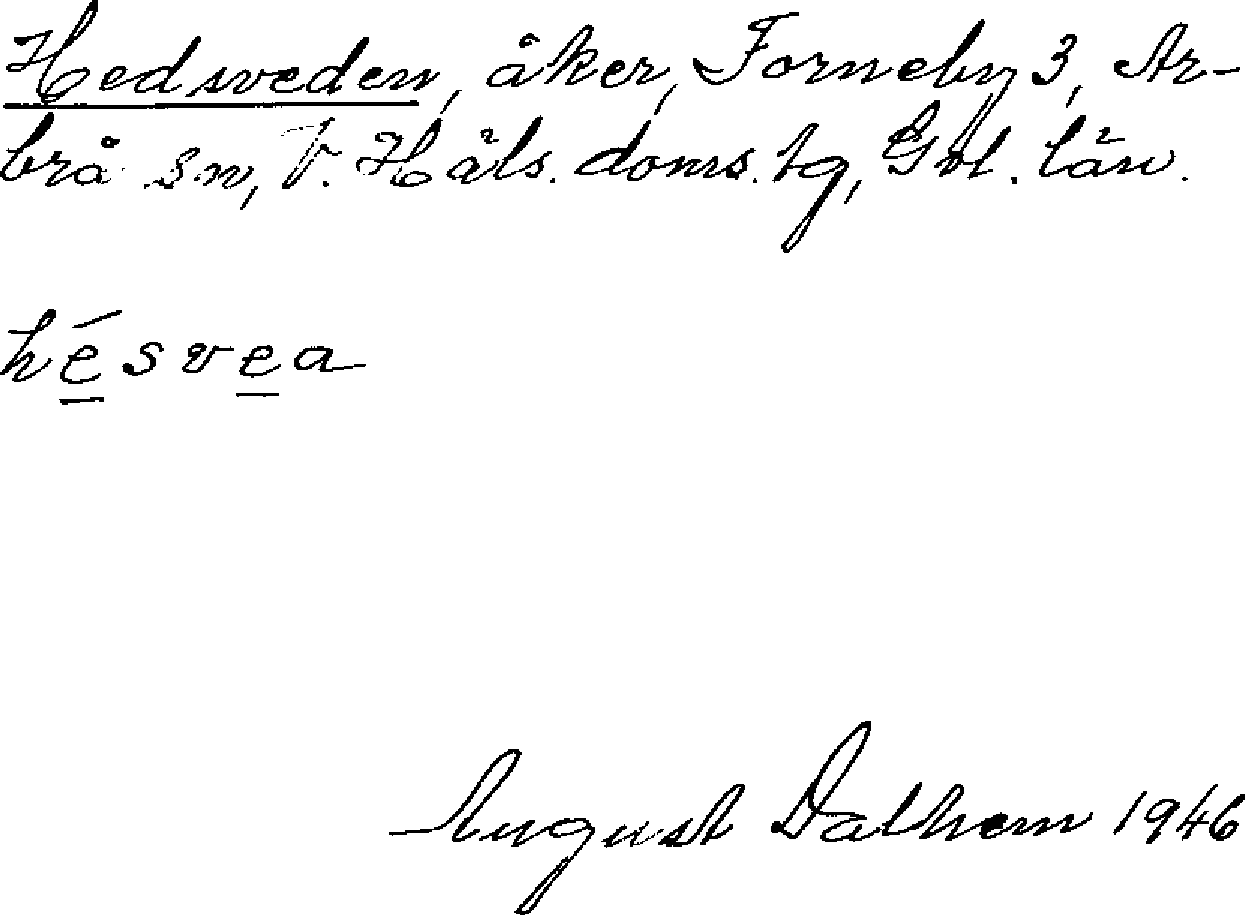 Hedsveden, åker, Forneby 3, Ar-
brå sn, V. Häls. doms. tg, Gvl. län.
hésvea
August Dalhem 1946